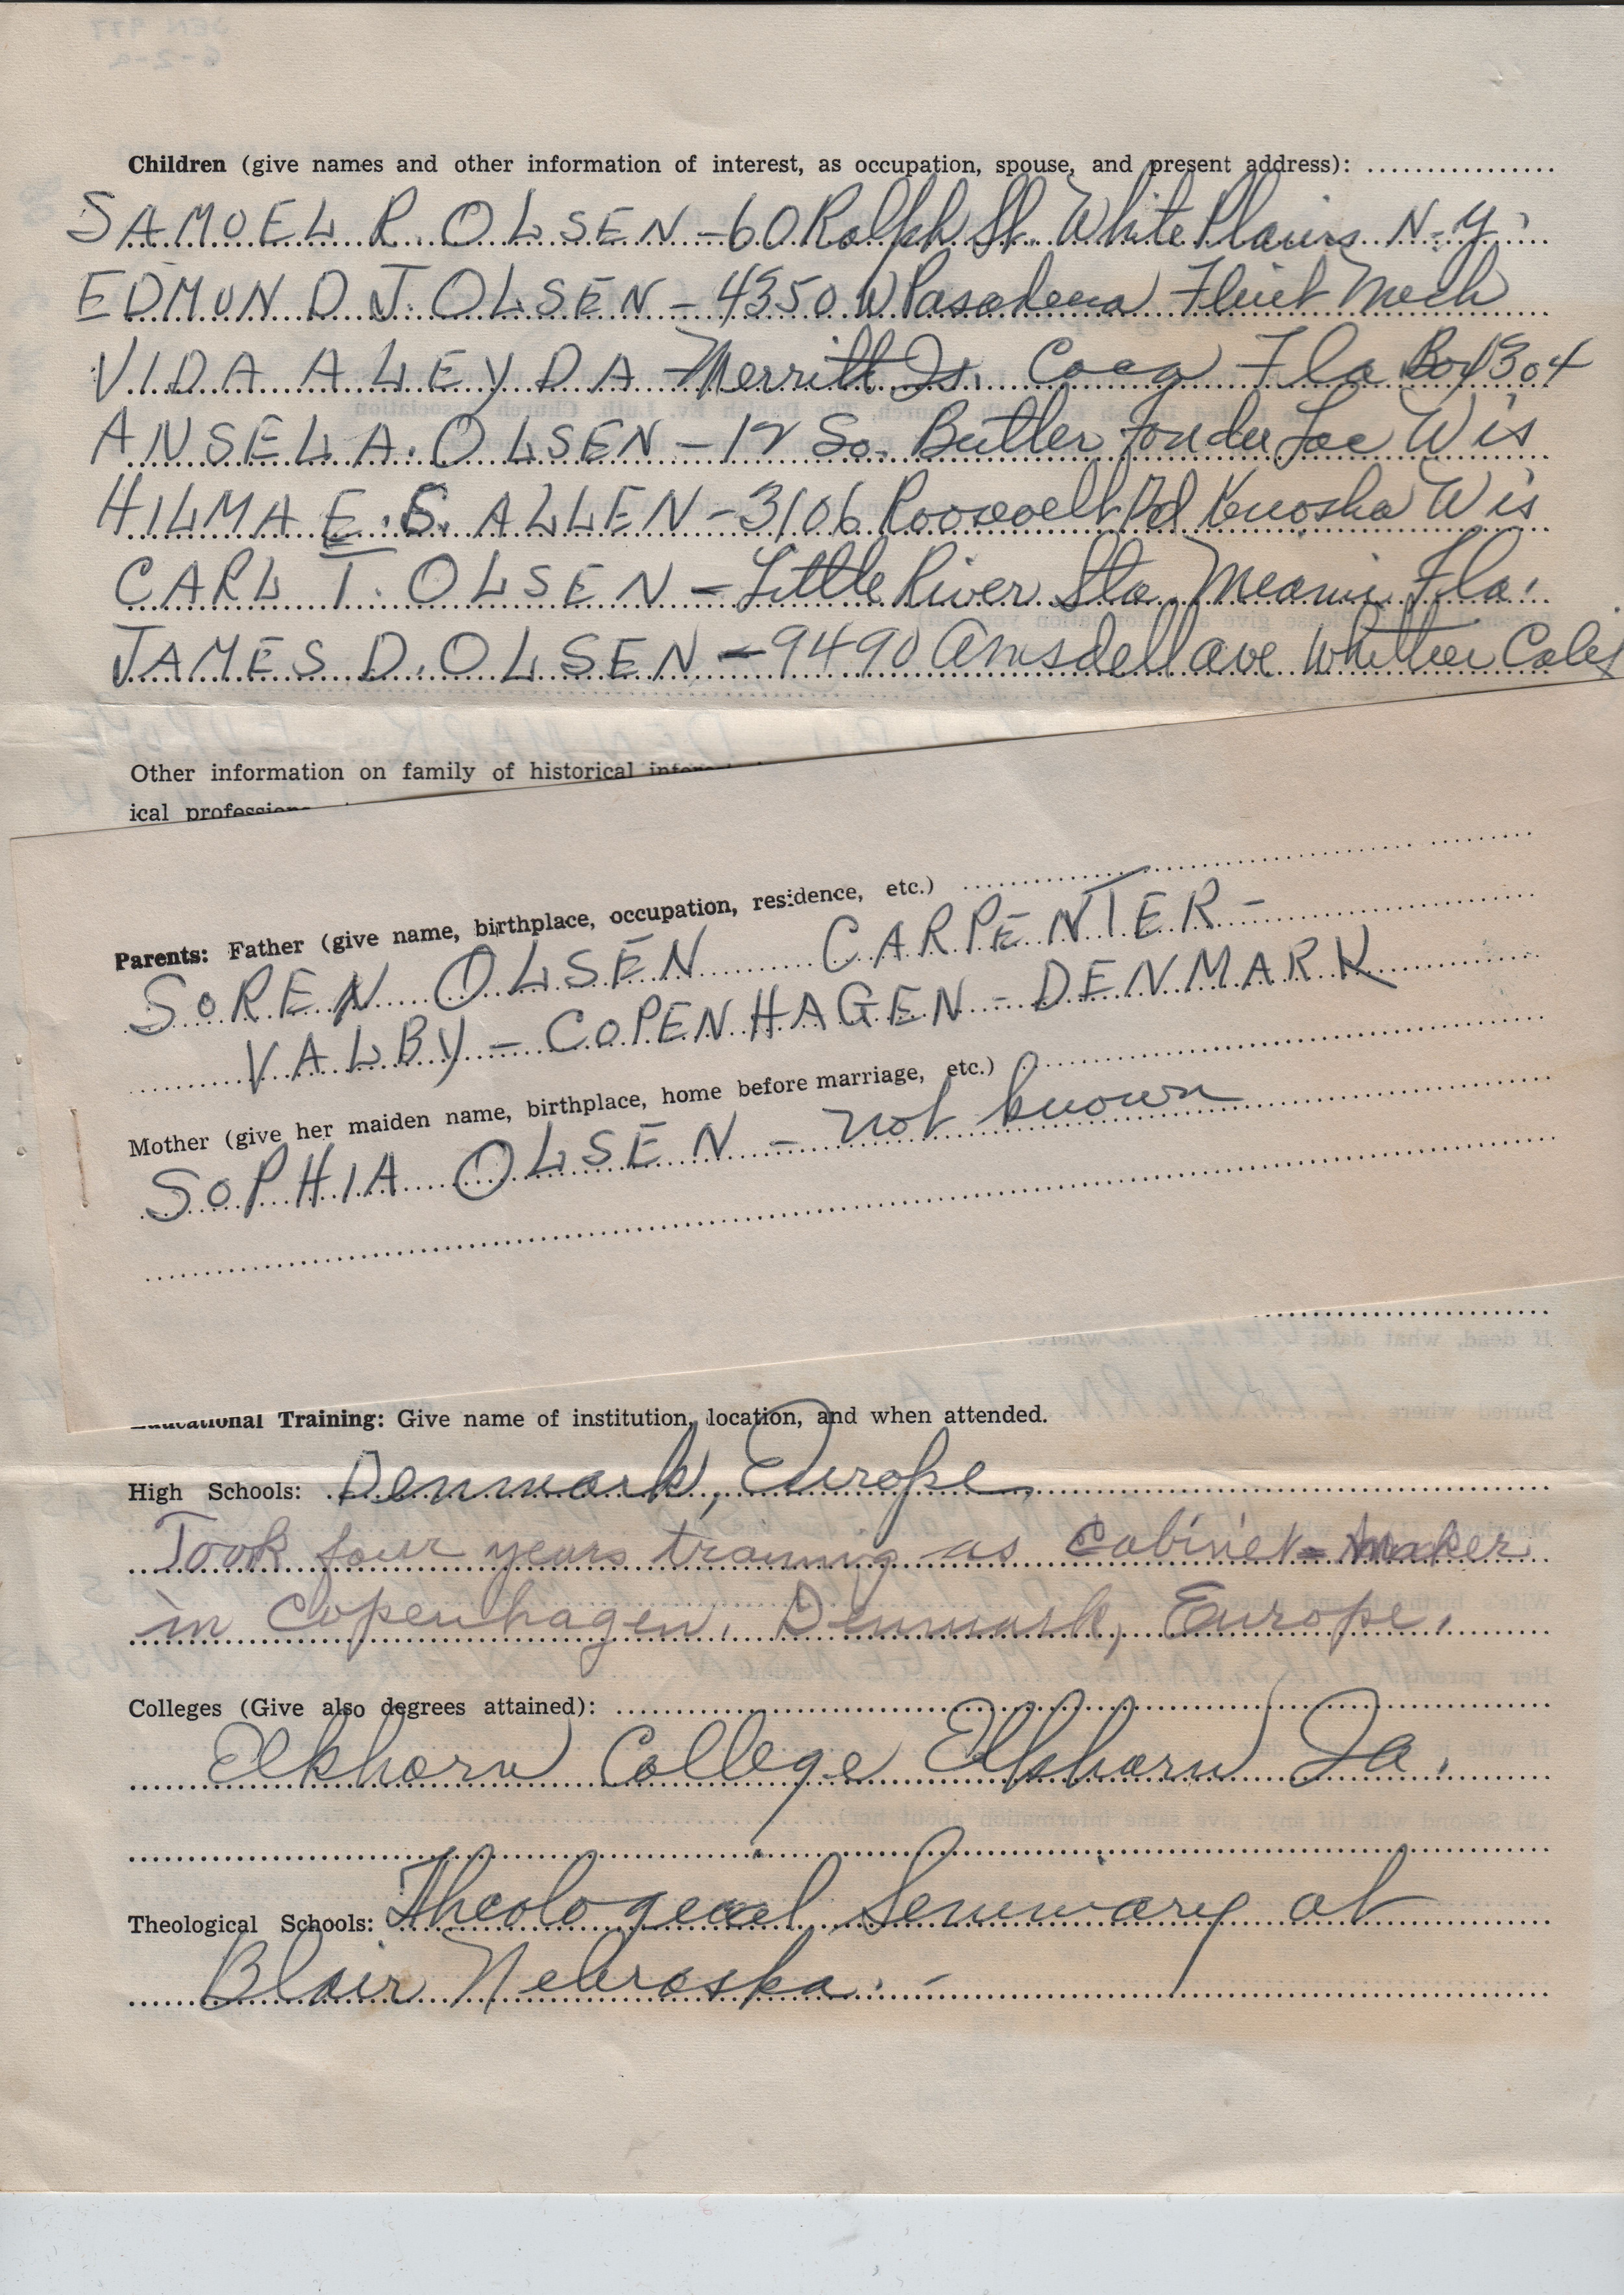 Children (give names and other information of interest, as occupation, spouse, and present address):
SAMUEL R. OLSEN - 60 Ralph St. White Plains N.Y.
EDMUND J. OLSEN - 4350 W Pasadena Flint Mech
VIDA ALEYDA - Merritt Is. Coca Fla Box 1304
ANSEL A. OLSEN - 12 So. Butler Fonder Loc Wis
HILMA E. S. ALLEN - 3106 Roosevelt Rd Kenosha Wis
CARL T. OLSEN - Little River Sta. Meami Fla.
JAMES D. OLSEN - 9490 Amsdell ave Whittier Calif
Other information on family of historical
ical
Parents: Father (give name, birthplace, occupation, residence, etc.)
SOREN OLSEN CARPENTER -
VALBY - COPENHAGEN - DENMARK
Mother (give her maiden name, birthplace, home before marriage, etc.)
SOPHIA OLSEN - not known
If dead, what date: where:
Buried where
Educational Training: Give name of institution, location, and when attended.
High Schools: Denmark, Europe,
Took four years training as Cabinet-maker
in Copenhagen, Denmark, Europe.
Colleges (Give also degrees attained):
Elkhorn College Elkhorn Ia.
Theological Schools: Theological Seminary at
Blair Nebraska. -